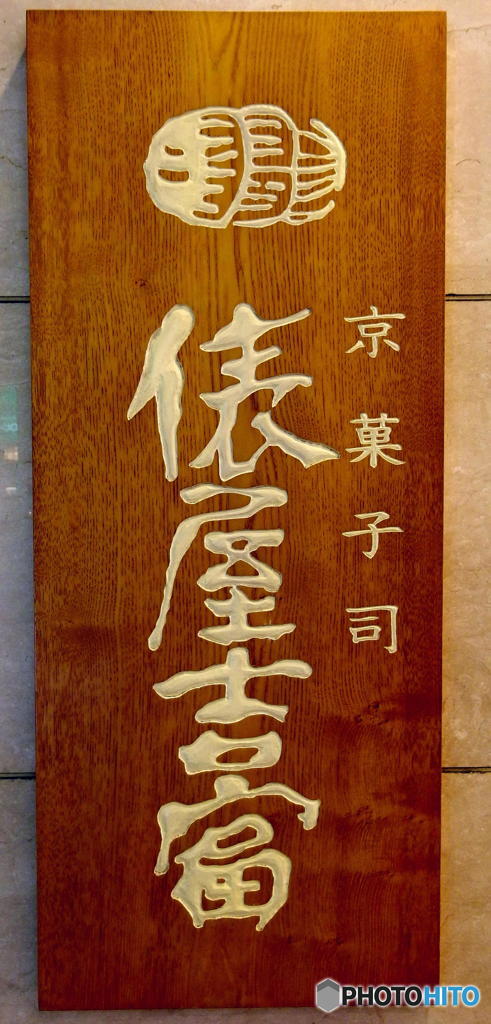 京菓子司
俵屋吉富
PHOTOHITO